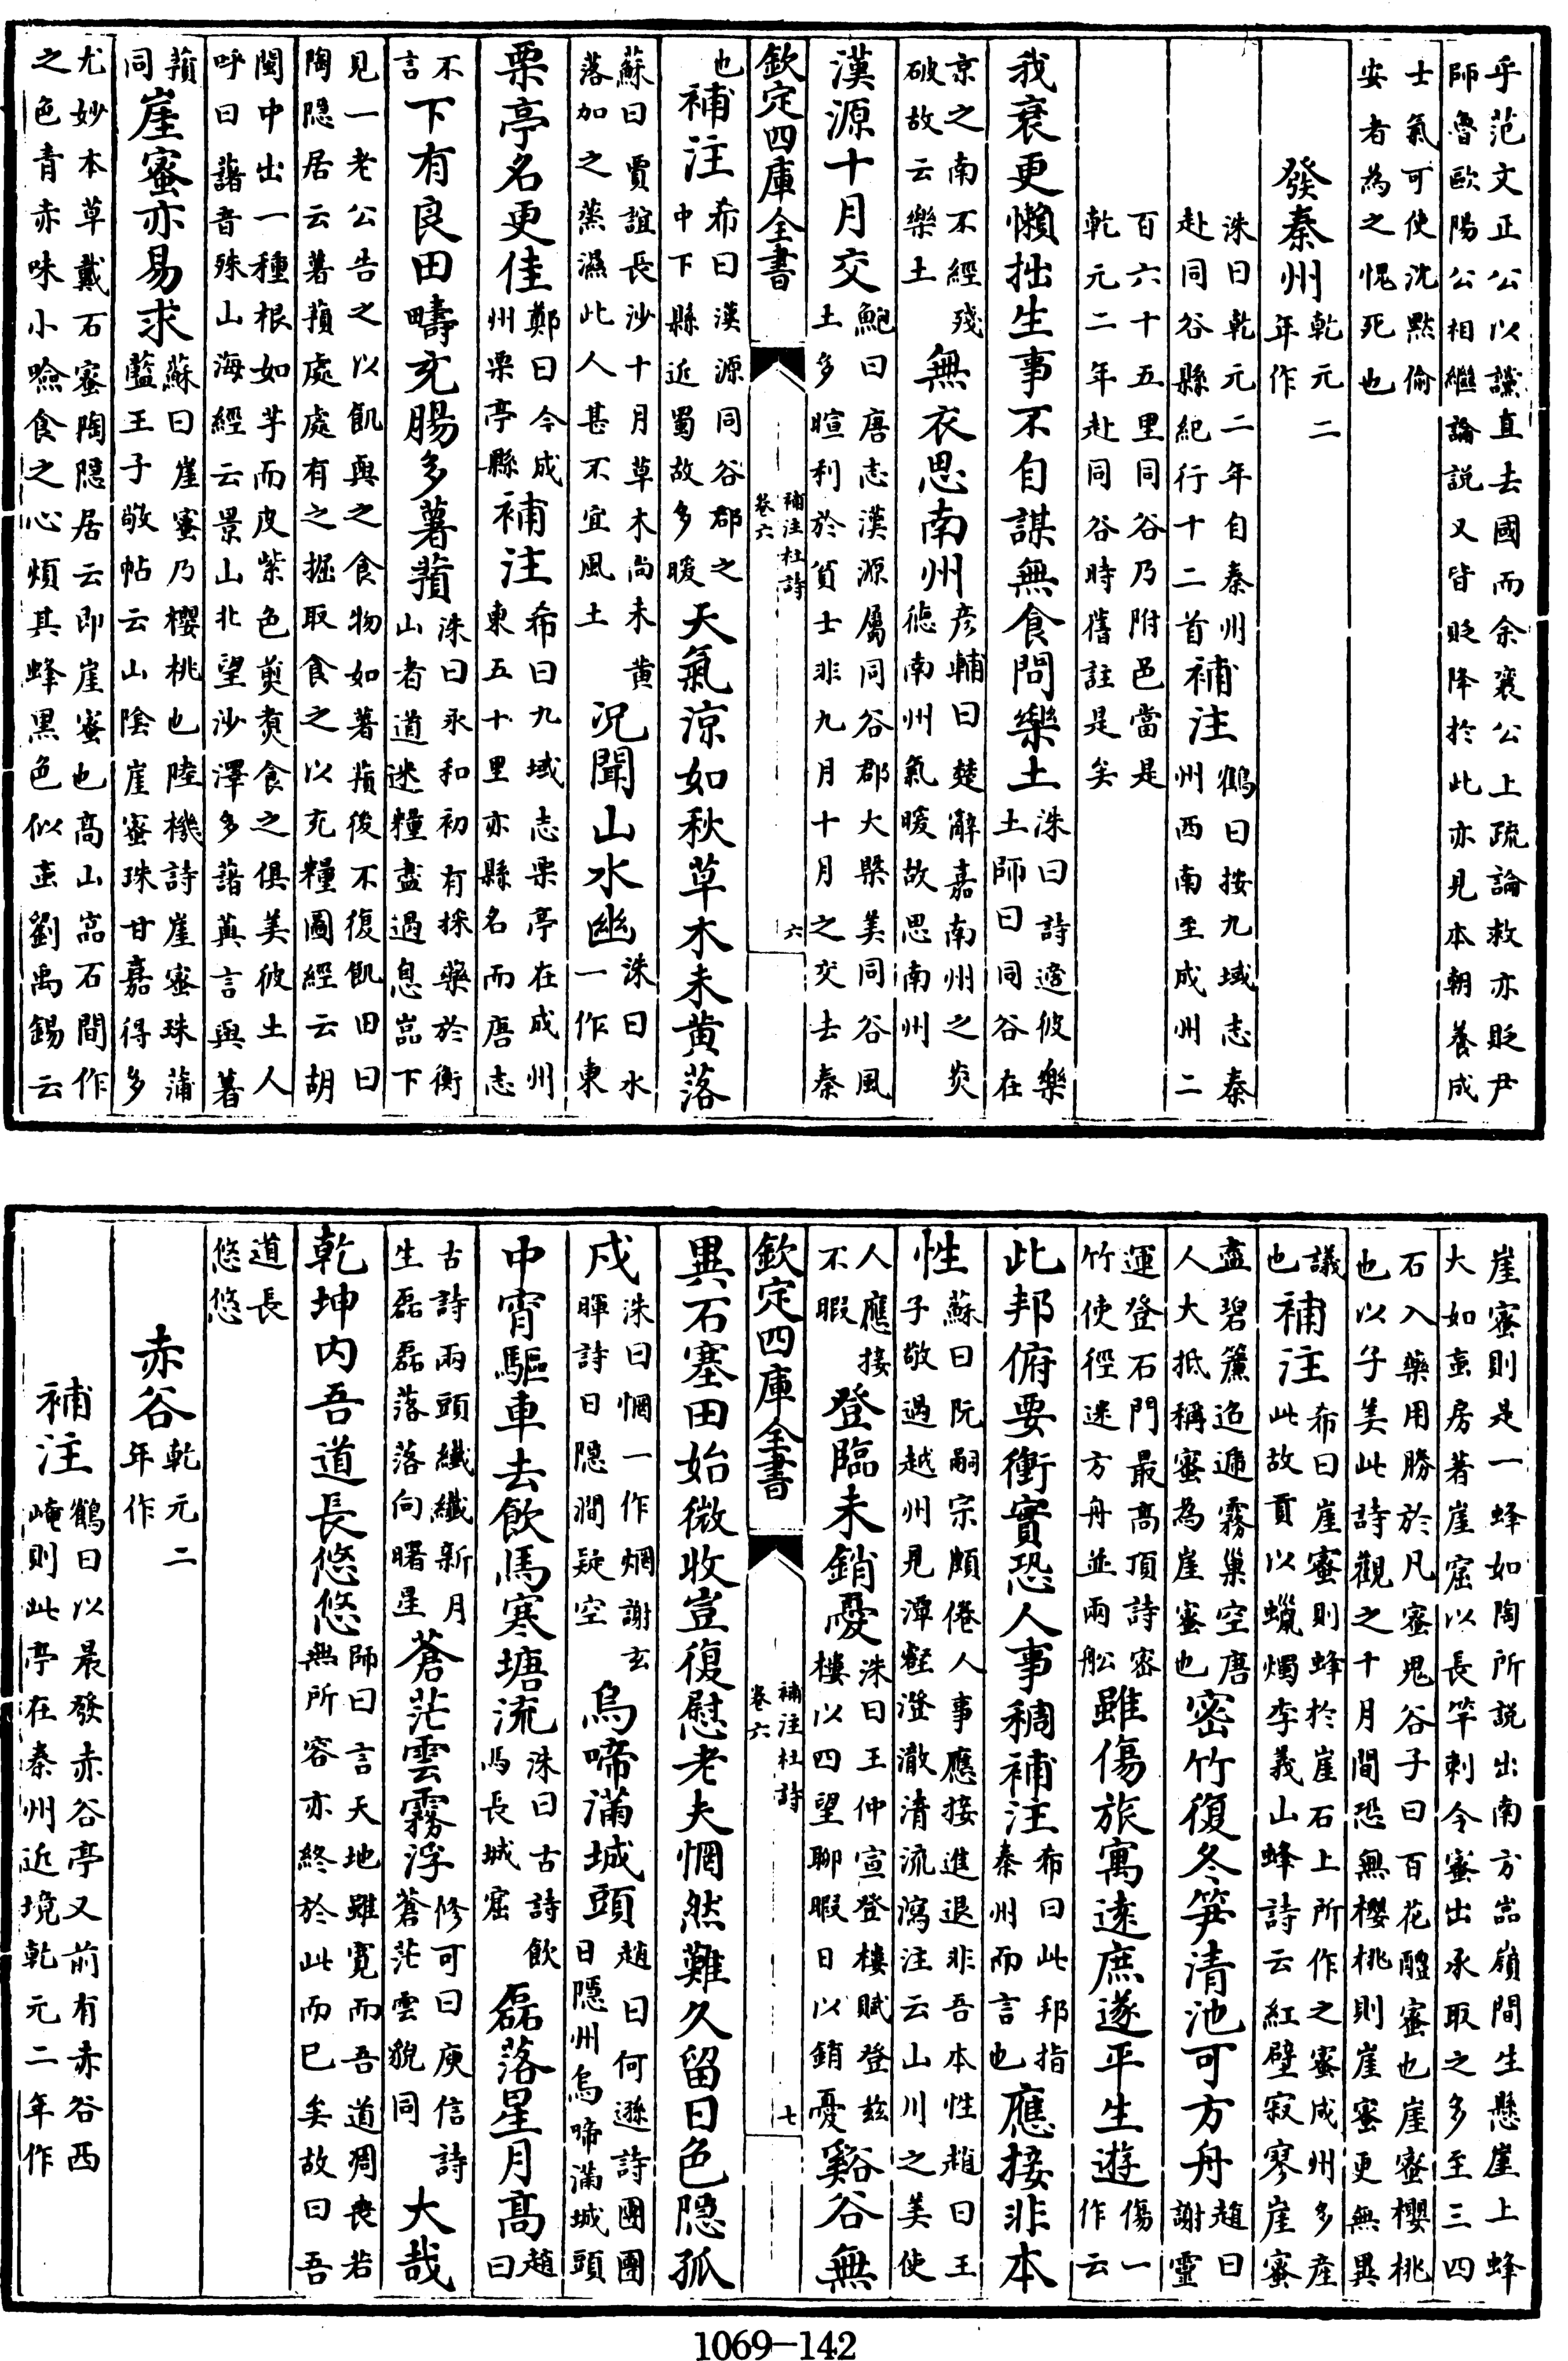 乎范文正公以讜直去國而余襄公上疏論救亦貶尹
師魯歐陽公相繼論説又皆貶降於此亦見本朝養成
士氣可使沈默偷
安者為之愧死也
發秦州乾元二
年作
洙曰乾元二年自秦州
赴同谷縣紀行十二首補注鶴曰按九域志秦
州西南至成州二
百六十五里同谷乃附邑當是
乾元二年赴同谷時舊註是矣
我衰更懶拙生事不自謀無食問樂土洙曰詩適彼樂
土師曰同谷在
京之南不經殘
破故云樂土無衣思南州彦輔曰楚辭嘉南州之炎
德南州氣暖故思南州
漢源十月交鮑曰唐志漢源屬同谷郡大槩美同谷風
土多暄利於貧士非九月十月之交去秦
欽定四庫全書
補注杜詩
卷六
六
也補注希曰漢源同谷郡之
中下縣近蜀故多暖天氣涼如秋草木未黄落
蘇曰賈誼長沙十月草木尚未黄
落加之蒸濕此人甚不宜風土況聞山水幽洙曰水
一作東
栗亭名更佳鄭曰今成
州栗亭縣補注希曰九域志栗亭在成州
東五十里亦縣名而唐志
不
言下有良田疇充腸多薯蕷洙曰永和初有採藥於衡
山者道迷糧盡過息嵓下
見一老公告之以飢與之食物如薯蕷後不復飢田曰
陶隠居云薯蕷處處有之掘取食之以充糧圖經云胡
閩中出一種根如芋而皮紫色煎煑食之俱美彼土人
呼曰藷音殊山海經云景山北望沙澤多藷藇言與薯
蕷
同崖蜜亦易求蘇曰崖蜜乃櫻桃也陸機詩崖蜜珠蒲
藍王子敬帖云山隂崖蜜珠甘嘉得多
尤妙本草戴石蜜陶隠居云即崖蜜也髙山嵓石間作
之色青赤味小嶮食之心煩其蜂黑色似䖟劉禹錫云
崖蜜則是一蜂如陶所説出南方嵓嶺間生懸崖上蜂
大如䖟房著崖窟以長竿刺令蜜出承取之多至三四
石入藥用勝於凡蜜鬼谷子曰百花醴蜜也崖蜜櫻桃
也以子美此詩觀之十月間恐無櫻桃則崖蜜更無異
議
也補注希曰崖蜜則蜂於崖石上所作之蜜成州多産
此故貢以蠟燭李義山蜂詩云紅壁寂寥崖蜜
盡碧簾迢遞霧巢空唐
人大抵稱蜜為崖蜜也密竹復冬笋清池可方舟趙曰
謝靈
運登石門最高頂詩密
竹使徑迷方舟並兩舩雖傷旅寓逺庶遂平生遊傷一
作云
此邦俯要衝實恐人事稠補注希曰此邦指
秦州而言也應接非本
性蘇曰阮嗣宗頗倦人事應接進退非吾本性趙曰王
子敬過越州見潭壑澄澈清流瀉注云山川之美使
人應接
不暇登臨未銷憂洙曰王仲宣登樓賦登兹
樓以四望聊暇日以銷憂谿谷無
欽定四庫全書
補注杜詩
卷六
七
異石塞田始微收豈復慰老夫惘然難久留日色隠孤
戍洙曰惘一作惆謝玄
暉詩日隠澗疑空烏啼滿城頭趙曰何遜詩團團
日隠州烏啼滿城頭
中宵驅車去飲馬寒塘流洙曰古詩飲
馬長城窟磊落星月髙趙
曰
古詩兩頭纖纖新月
生磊磊落落向曙星蒼茫雲霧浮修可曰庾信詩
蒼茫雲貌同大哉
乾坤内吾道長悠悠師曰言天地雖寛而吾道凋喪若
無所容亦終於此而巳矣故曰吾
道長
悠悠
赤谷乾元二
年作
補注鶴曰以晨發赤谷亭又前有赤谷西
崦則此亭在秦州近境乾元二年作
1069—142